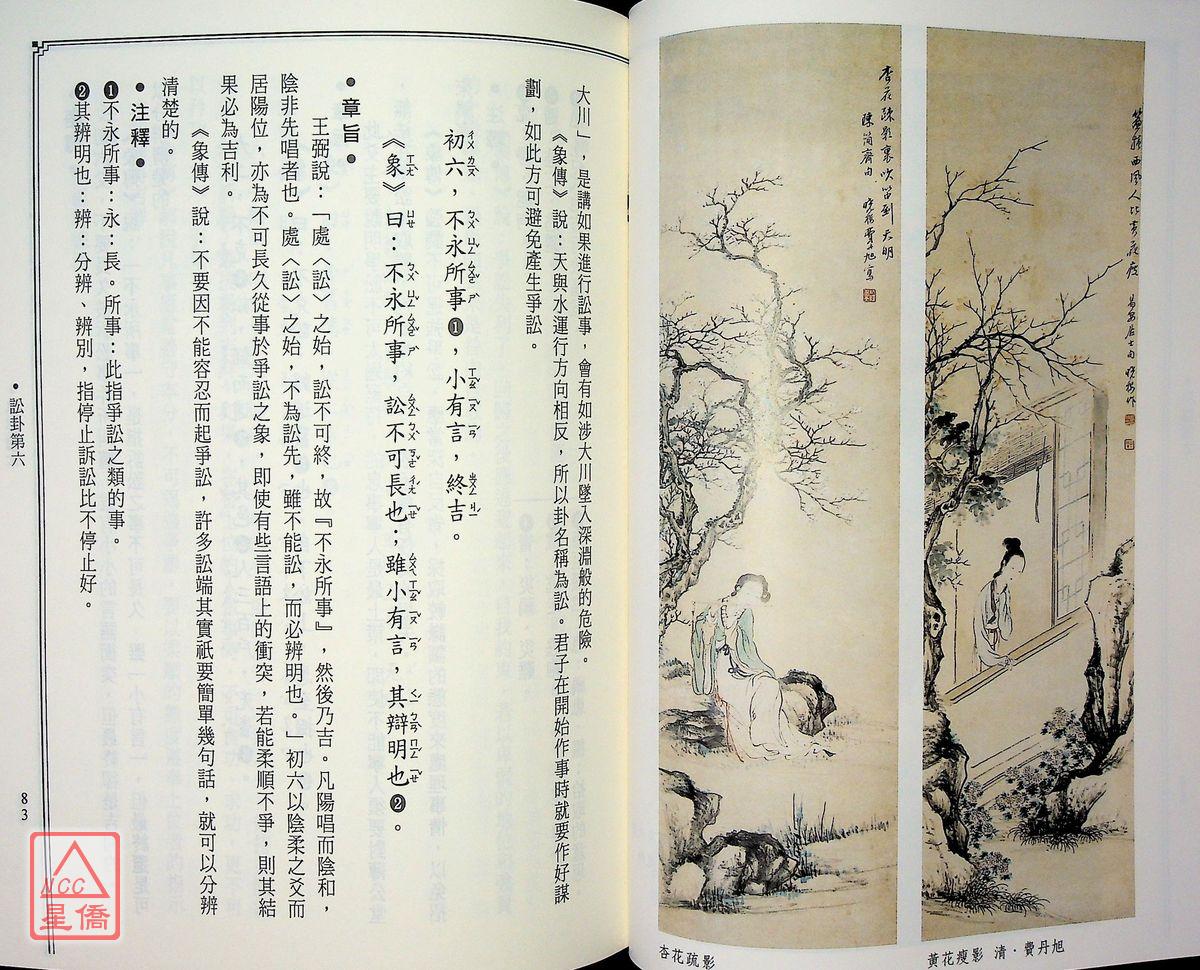 大川」，是講如果進行訟事，會有如涉大川墜入深淵般的危險。
《象傳》說：天與水運行方向相反，所以卦名稱為訟。君子在開始作事時就要作好謀
劃，如此方可避免產生爭訟。
初六，不永所事❶，小有言，終吉。
《象》曰：不永所事，訟不可長也；雖小有言，其辯明也❷。
●章旨●
王弼說：「處〈訟〉之始，訟不可終，故『不永所事』，然後乃吉。凡陽唱而陰和，
陰非先唱者也。處〈訟〉之始，不為訟先，雖不能訟，而必辨明也。」初六以陰柔之爻而
居陽位，亦為不可長久從事於爭訟之象，即使有些言語上的衝突，若能柔順不爭，則其結
果必為吉利。
《象傳》說：不要因不能容忍而起爭訟，許多訟端其實祇要簡單幾句話，就可以分辨
清楚的。
●注釋●
❶不永所事：永：長。所事：此指爭訟之類的事。
❷其辨明也：辨：分辨、辨別，指停止訴訟比不停止好。
●訟卦第六
83
NCC
星僑
杏花疎影裏吹笛到天明
陳簡齋句 曉樓費丹旭寫
西風人比黃花瘦
易安居士句 曉樓作
杏花疏影
黃花瘦影 清．費丹旭